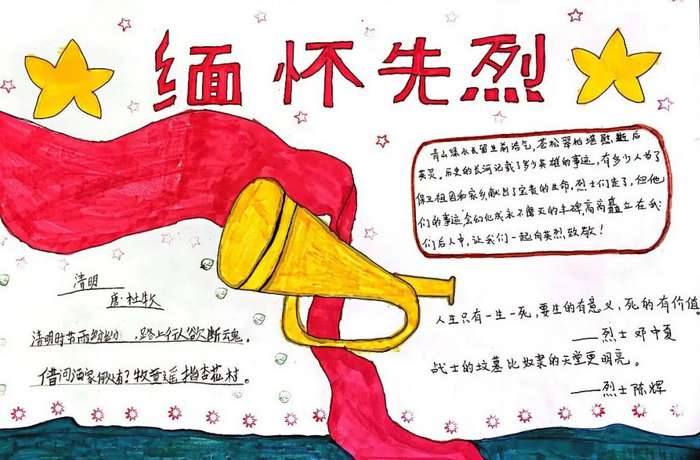 缅怀先烈
青山绿水长留生前浩气,苍松翠柏堪慰逝后
英灵。历史的长河记载了多少英雄的事迹,有多少人为了
保卫祖国和家乡,献出了宝贵的生命,烈士们走了,但他
们的事迹,会幻化成永不磨灭的丰碑,高高矗立在我
们后人中,让我们一起向英烈致敬!
清明
唐·杜牧
清明时节雨纷纷,路上行人欲断魂。
借问酒家何处有?牧童遥指杏花村。
人生只有一生一死,要生的有意义,死的有价值
——烈士 邓中夏
战士的坟墓比奴隶的天堂更明亮。
——烈士 陈辉